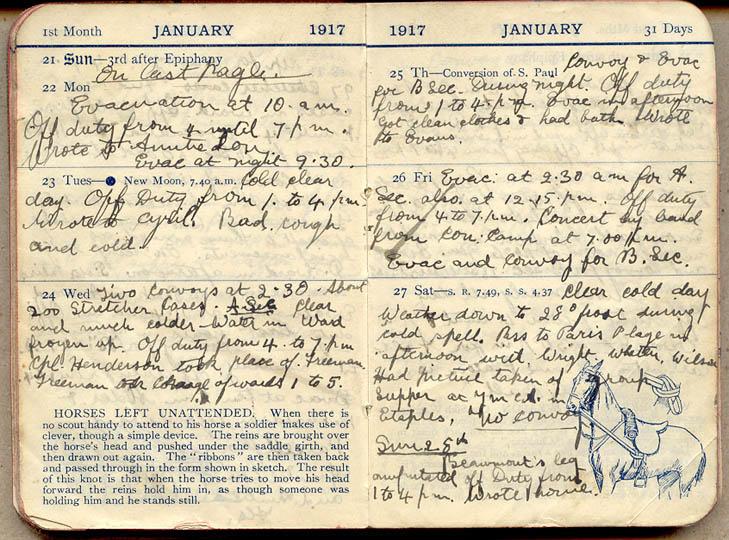 1st Month JANUARY 1917
21 Sun—3rd after Epiphany
On last page.
22 Mon
Evacuation at 10 a.m.
Off duty from 4 until 7 p.m.
Wrote to Auntie Lon.
Evac at night 9.30.
23 Tues—● New Moon, 7.40 a.m. Cold clear
day. Off Duty from 1. to 4 p.m.
Wrote to Cyril. Bad cough
and cold.
24 Wed Two Convoys at 2.30. About
200 Stretcher Cases. A Sec Clear
and much colder—Water in Ward
frozen up. Off duty from 4. to 7 p.m
Cpl. Henderson took place of Freeman.
Freeman charge of wards 1 to 5.
HORSES LEFT UNATTENDED. When there is
no scout handy to attend to his horse a soldier makes use of
clever, though a simple device. The reins are brought over
the horse's head and pushed under the saddle girth, and
then drawn out again. The "ribbons" are then taken back
and passed through in the form shown in sketch. The result
of this knot is that when the horse tries to move his head
forward the reins hold him in, as though someone was
holding him and he stands still.
1917 JANUARY 31 Days
25 Th—Conversion of S. Paul Convoy & Evac
for B Sec. During night. Off duty
from 1 to 4 p.m. Evac in afternoon
Got clean clothes & had bath. Wrote
to Evans.
26 Fri Evac. at 2.30 a.m for A.
Sec. also at 12.15 p.m. Off duty
from 4 to 7 p.m. Concert by band
from Con. Camp at 7.00 p.m.
Evac and convoy for B. Sec.
27 Sat—S. R. 7.49, S. S. 4.37 Clear cold day
Weather down to 28° frost during
cold spell. Pass to Paris Plage in
afternoon with Wright, Wilson
Had picture taken of group
Supper at in
Etaples, No convoy
Sun 28th
Beaumont's leg
amputated off Duty from
1 to 4 p.m. Wrote home.